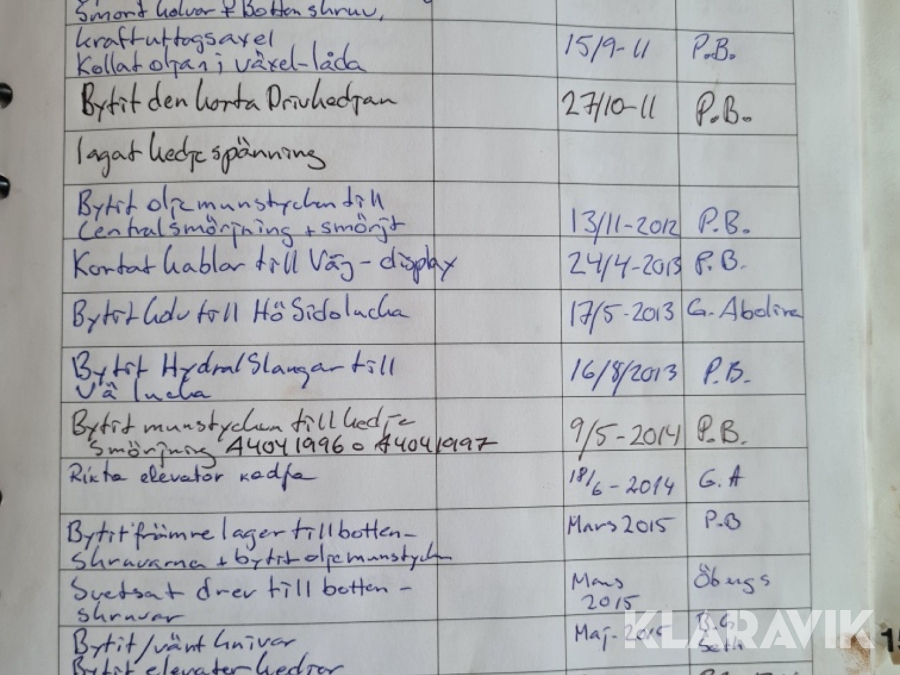 Smort kolvar + Bottenskruv,
kraftuttagsaxel
Kollat oljan i växel-låda 15/9-11 P.B.
Bytit den korta Drivkedjan 27/10-11 P.B.
lagat kedjespänning
Bytit oljemunstycken till
Centralsmörjning + smörjt 13/11-2012 P.B.
Kortat kablar till Våg-display 24/4-2013 P.B.
Bytit till Hö Sidolucka 17/5-2013 G.
Bytit HydralSlangar till
Vä lucka 16/8/2013 P.B.
Bytit munstycken till kedje
smörjning A4041996 o A4041997 9/5-2014 P.B.
Rikta elevator kedja 18/6-2014 G.A
Bytit främre lager till botten-
skruvarna + bytit oljemunstycken Mars 2015 P.B
Svetsat drev till botten-
skruvar Mars 2015 Öbergs
Bytit/vänt knivar Maj-2015 B.G
Seth
Bytit elevator kedjor
KLARAVIK